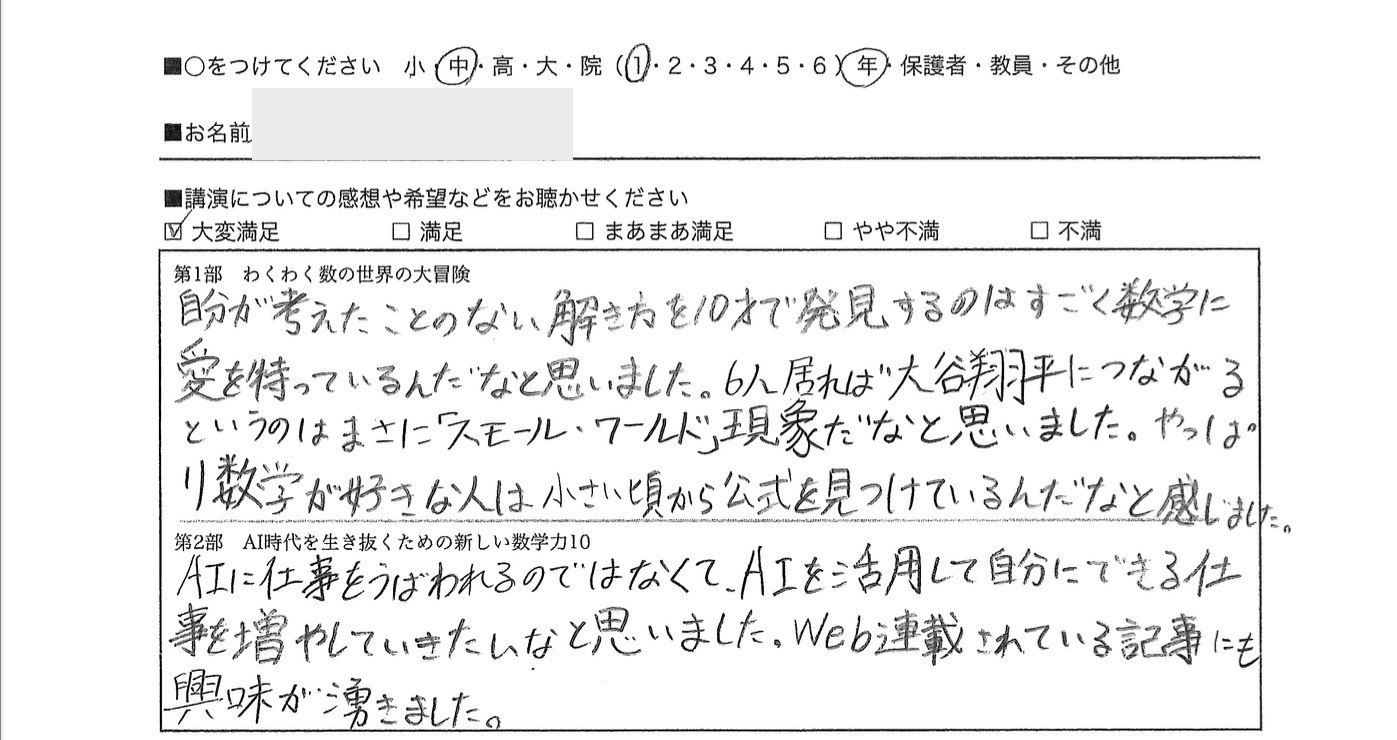 ■○をつけてください　小・中・高・大・院（1・2・3・4・5・6）年・保護者・教員・その他
■お名前
■講演についての感想や希望などをお聴かせください
☑ 大変満足　□ 満足　□ まあまあ満足　□ やや不満　□ 不満
第1部　わくわく数の世界の大冒険
自分が考えたことのない解き方を10才で発見するのはすごく数学に
愛を持っているんだなと思いました。6人居れば大谷翔平につながる
というのはまさに「スモール・ワールド」現象だなと思いました。やっぱ
り数学が好きな人は小さい頃から公式を見つけているんだなと感じました。
第2部　AI時代を生き抜くための新しい数学力10
AIに仕事をうばわれるのではなくて、AIを活用して自分にできる仕
事を増やしていきたいなと思いました。Web連載されている記事にも
興味が湧きました。